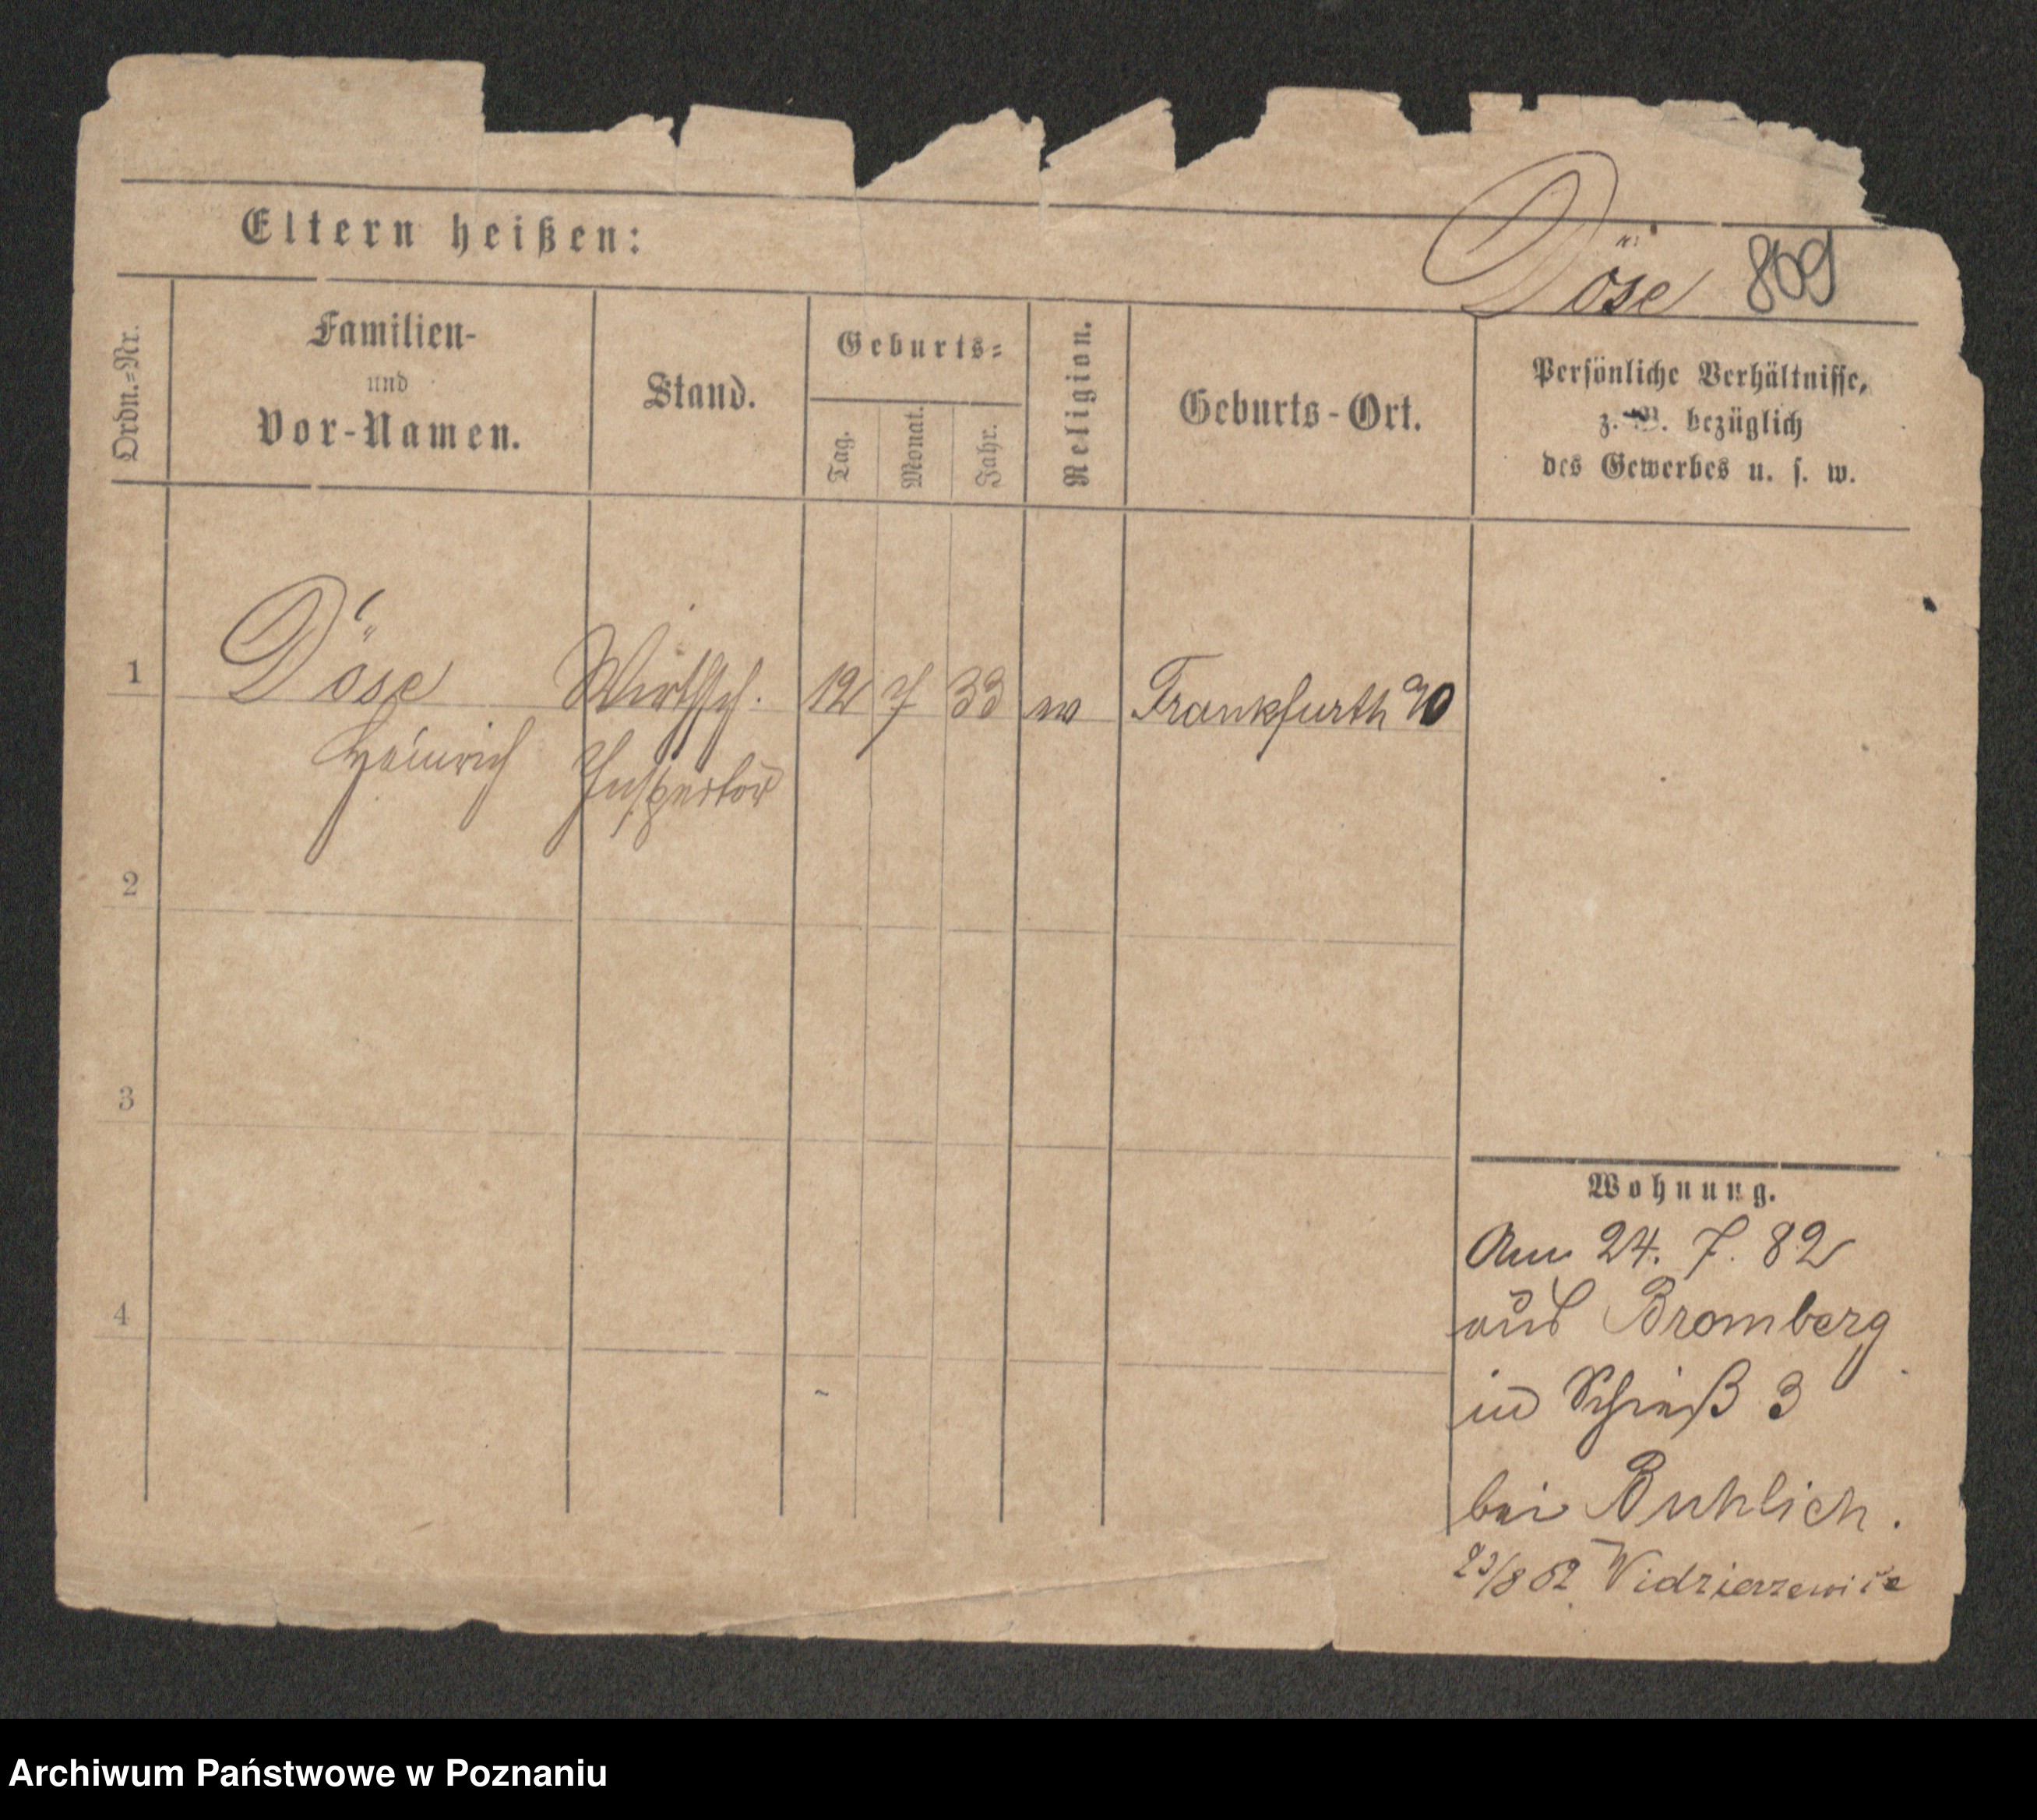 Eltern heißen:
Döse 869
Ordn.-Nr.
Familien-
und
Vor-Namen.
Stand.
Geburts-
Tag.
Monat.
Jahr.
Religion.
Geburts-Ort.
Persönliche Verhältnisse,
z. B. bezüglich
des Gewerbes u. s. w.
1 Döse Wirthsch. 12 7 33 ev Frankfurth
Heinrich Inspector
2
3
4
Wohnung.
Am 24. 7. 82
aus Bromberg
in Schieß 3
bei Buhlich.
Archiwum Państwowe w Poznaniu